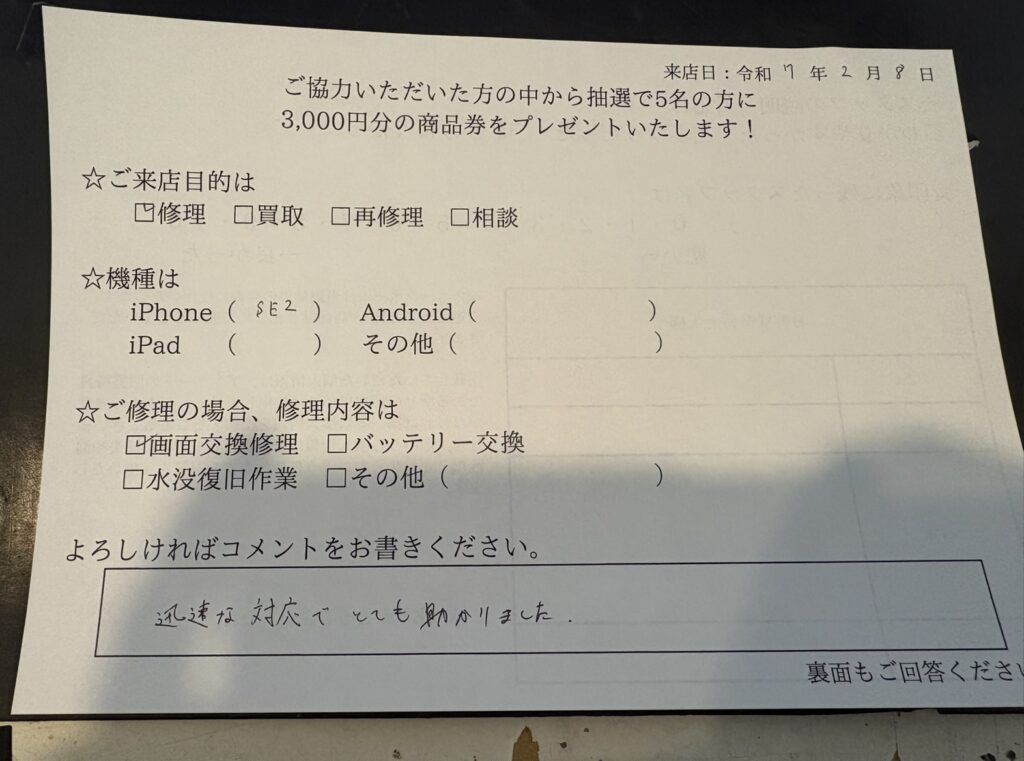 来店日：令和 7 年 2 月 8 日
ご協力いただいた方の中から抽選で5名の方に
3,000円分の商品券をプレゼントいたします！
☆ご来店目的は
☑修理 □買取 □再修理 □相談
☆機種は
iPhone（ SE2 ） Android（ ）
iPad （ ） その他（ ）
☆ご修理の場合、修理内容は
☑画面交換修理 □バッテリー交換
□水没復旧作業 □その他（ ）
よろしければコメントをお書きください。
迅速な対応でとても助かりました.
裏面もご回答ください